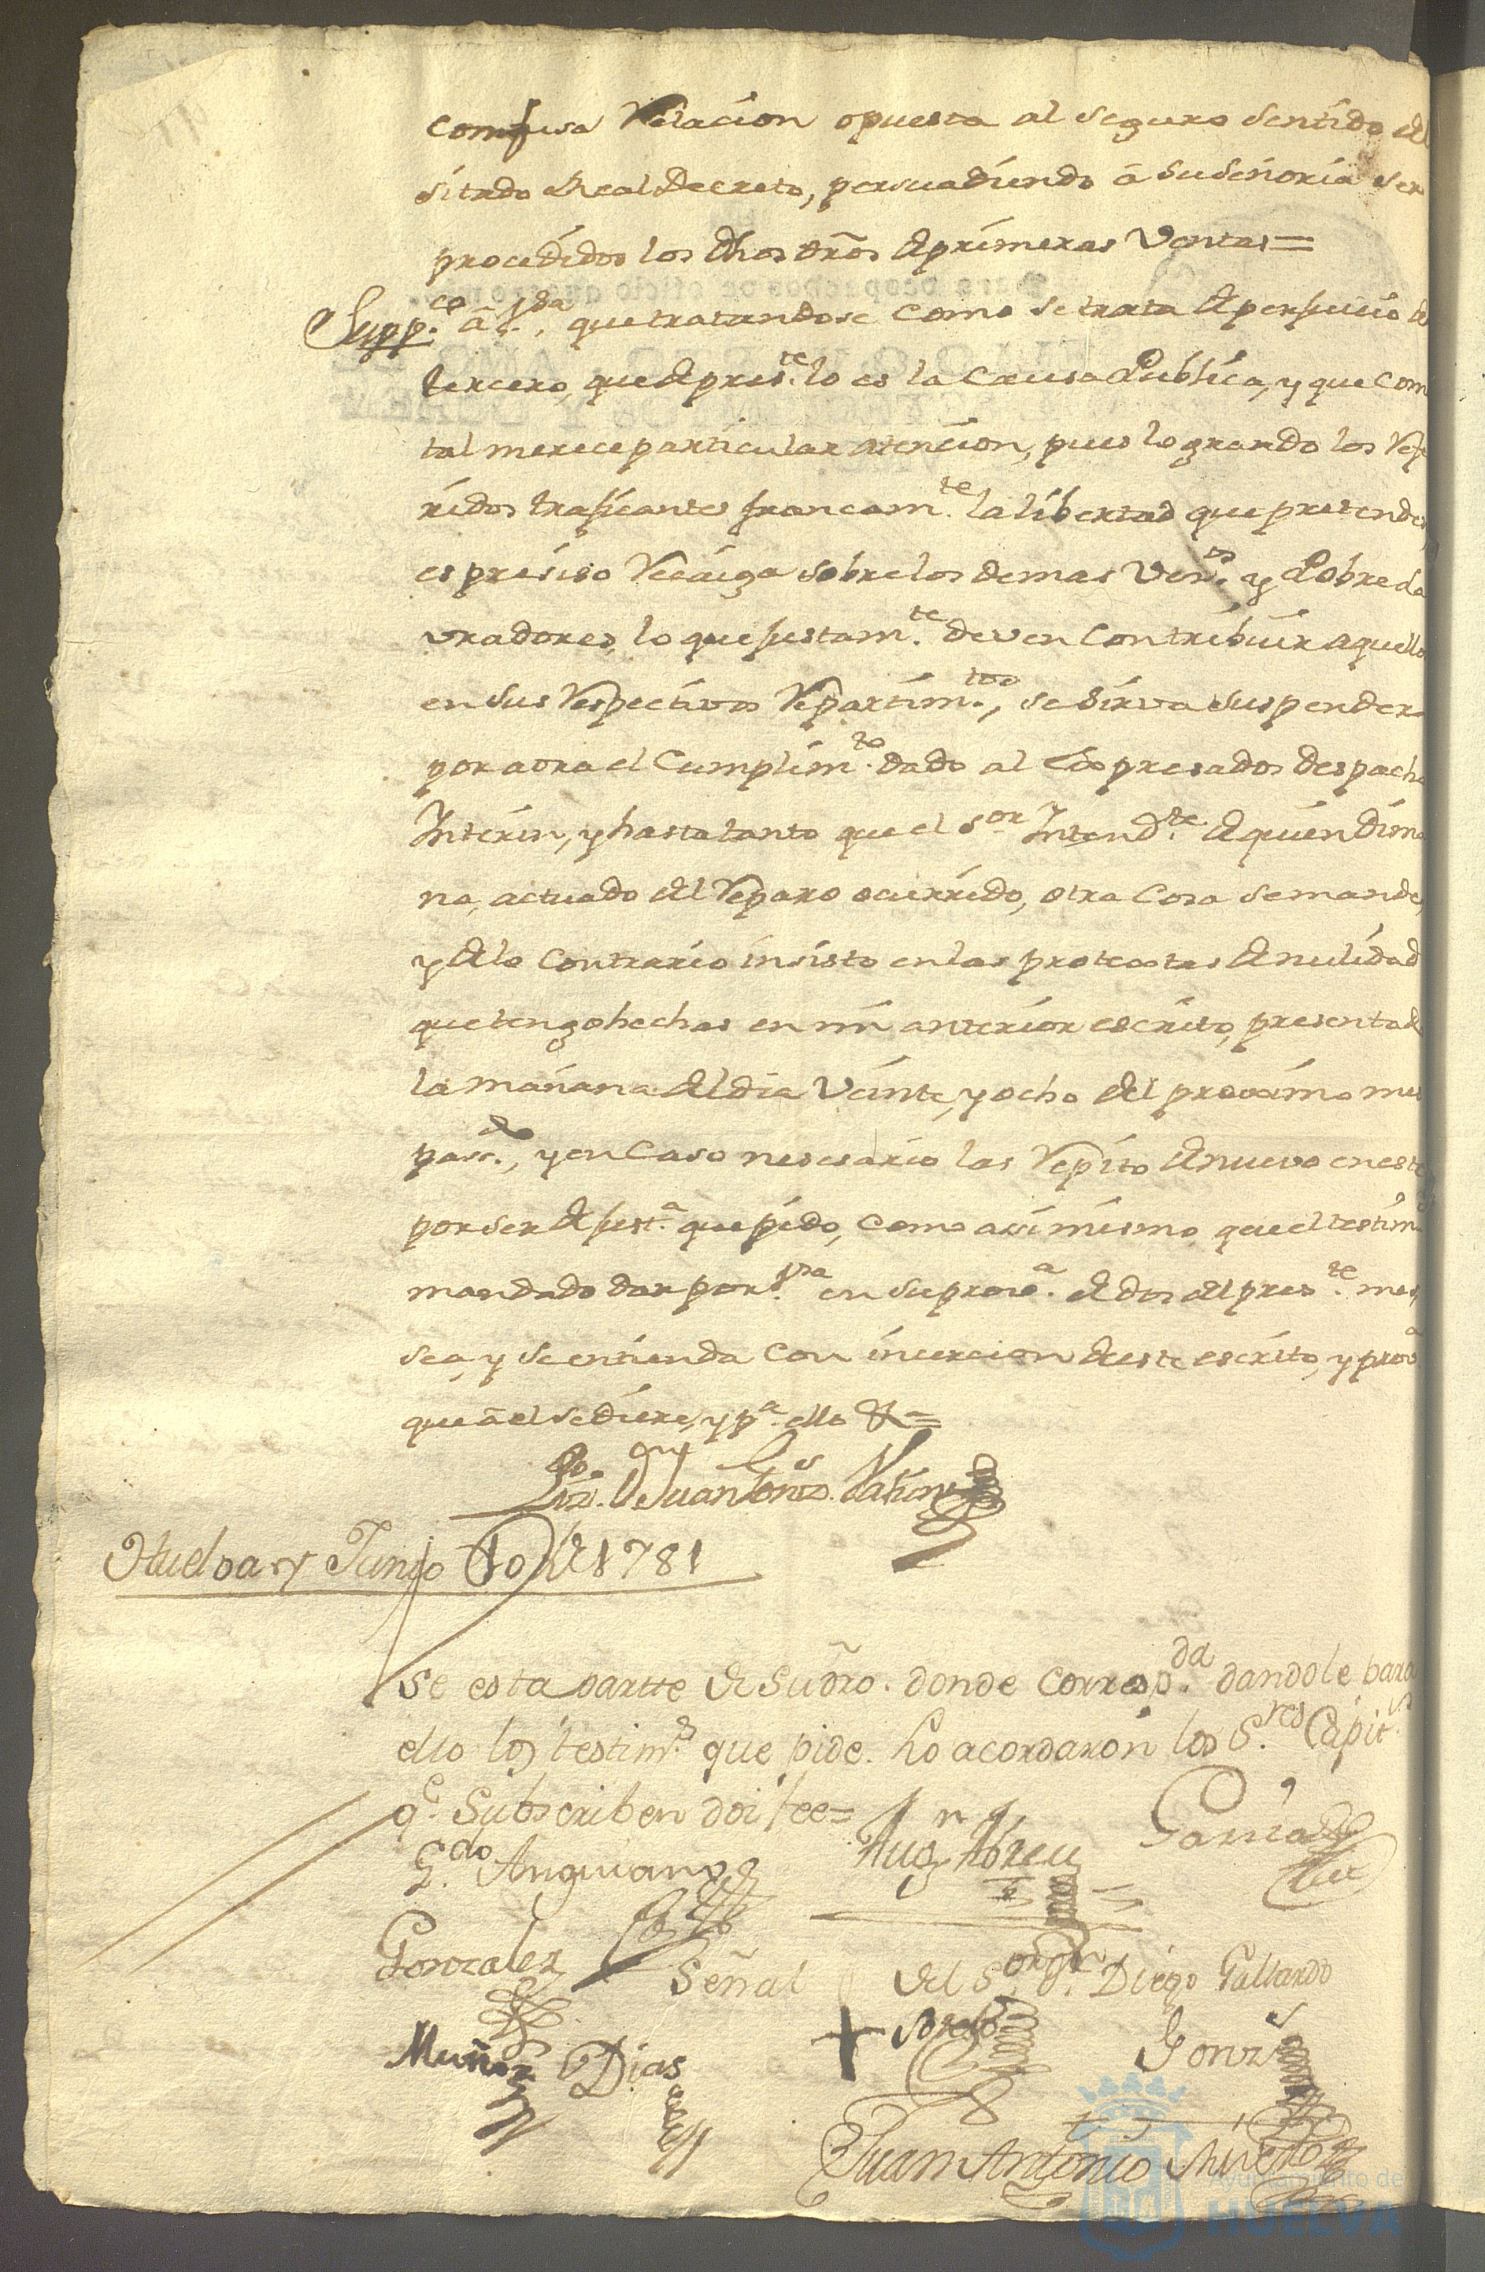 confusa Relacion opuesta al seguro sentido del
sitado Real Decreto, persuadiendo â Su Señoria ser
procedidos los dhos dr̃os de primeras Ventas=
Supp.co â V.Sda, que tratandose como se trata de perjuicio de
tercero, que de pres.te lo es la Causa Publica, y que com
tal merece particular atencion, pues logrando los Refe
ridos traficantes francam.te la libertad que pretenden,
es presiso Recaiga sobre los demas Vez.os y Pobres la
vradores, lo que justam.te deven Contribuir aquello
en sus Respectivos Repartim.tos, se sirva suspender
por aora el Cumplim.to dado al Expresados despacho
Interin, y hasta tanto que el S.or Intend.te de quien Dima
na, actuado del Reparo ocurrido, otra Cosa se mande,
y de lo Contrario insisto en las protestas de nulidad
que tengo hechas en mi anterior escrito, presentad
la mañana del dia Veinte, y ocho del proximo mes
pass.do, y en Caso nesesario las Repito de nuevo en este
por ser de just.a que pido, como assimismo, que el testim
mandado dar por V.Sda en su prov.a de dos del pres.te mes,
sea, y se entienda con incercion de este escrito, y prov.a
que â el se diere, y p.a ello &=
Liz.do Dn Juan Gonz.s
Huelva y Junio 10 de 1781
Use esta partte de su dr̃o. donde corresp.da dandole para
ello los testim.s que pide. Lo acordaron los S.res Capit.s
q.e Subscriben doi fee=
G.do Anguiano
Aug.n Abreu
Garcia
Gonzalez
Señal del S.or D.n Diego Gallardo
+
Muñoz
Dias
Gonz.s
Juan Antonio
Ayuntamiento de
HUELVA